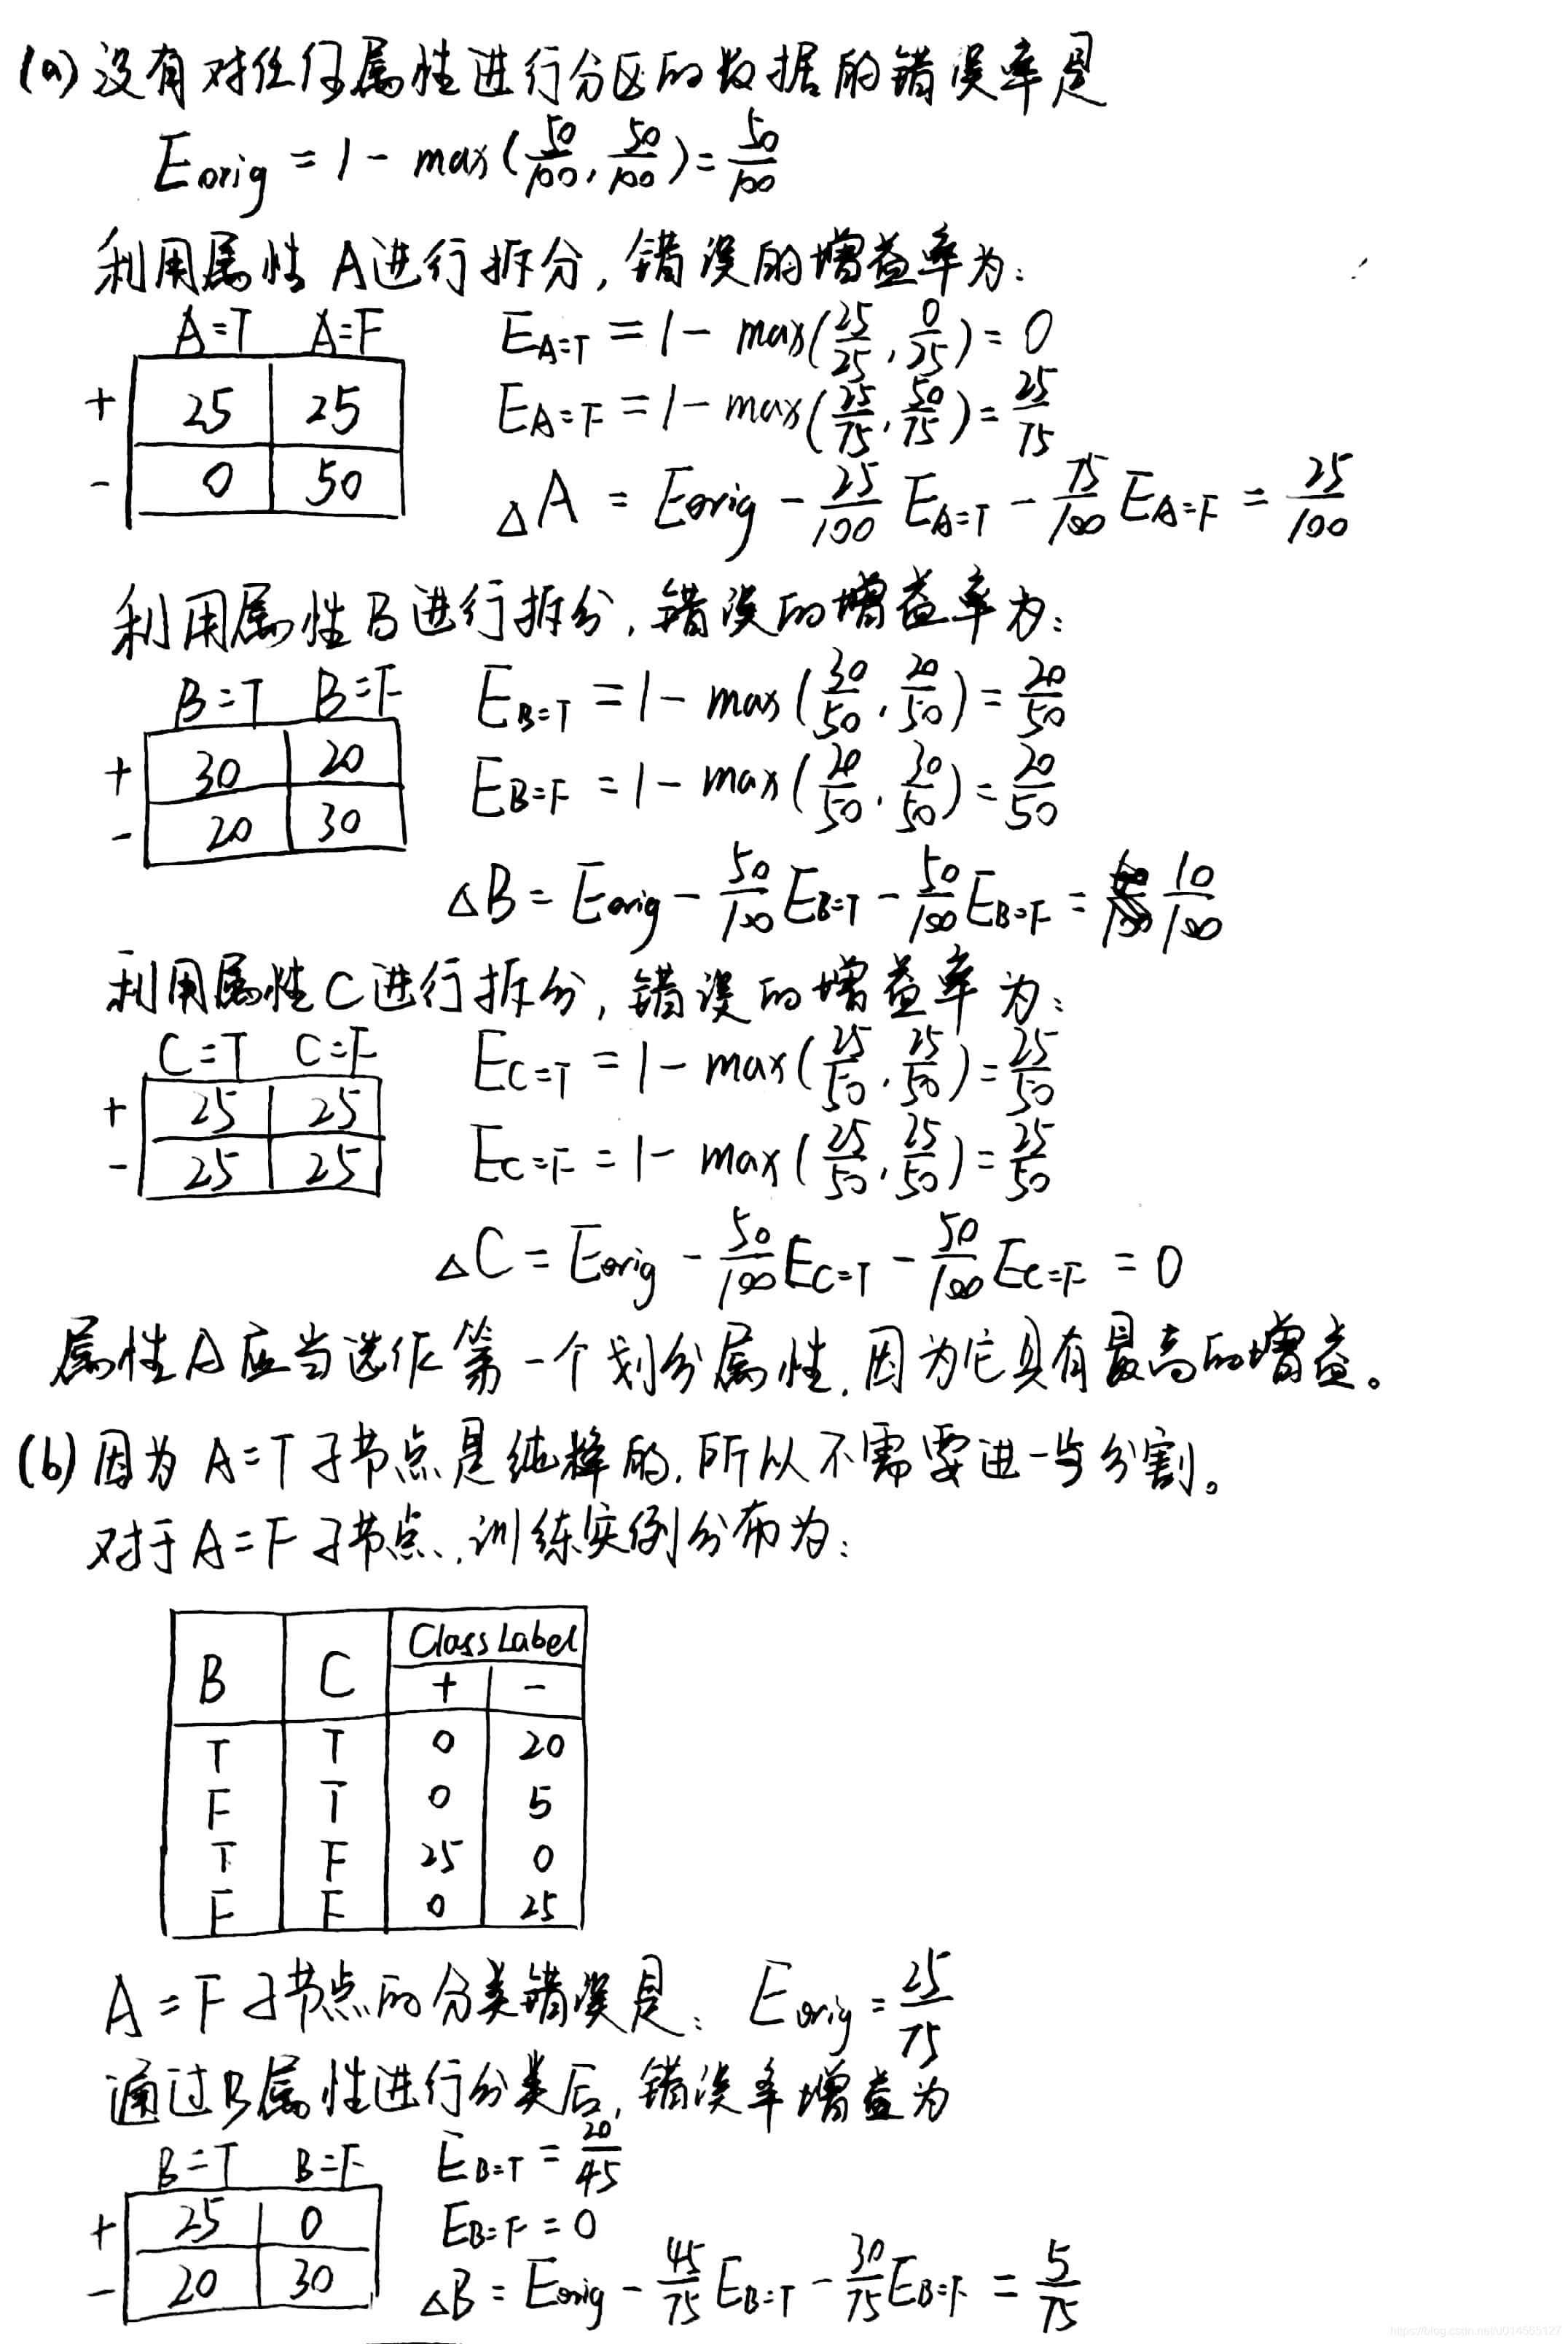 (a) 没有对任何属性进行分区的数据的错误率是
Eorig = 1 - max(50/100, 50/100) = 50/100
利用属性A进行拆分,错误的增益率为:
A=T A=F
+ 25 25
- 0 50
E_A=T = 1 - max(25/25, 0/25) = 0
E_A=F = 1 - max(25/75, 50/75) = 25/75
△A = Eorig - 25/100 E_A=T - 75/100 E_A=F = 25/100
利用属性B进行拆分,错误的增益率为:
B=T B=F
+ 30 20
- 20 30
E_B=T = 1 - max(30/50, 20/50) = 20/50
E_B=F = 1 - max(20/50, 30/50) = 20/50
△B = Eorig - 50/100 E_B=T - 50/100 E_B=F = 10/100
利用属性C进行拆分,错误的增益率为:
C=T C=F
+ 25 25
- 25 25
E_C=T = 1 - max(25/50, 25/50) = 25/50
E_C=F = 1 - max(25/50, 25/50) = 25/50
△C = Eorig - 50/100 E_C=T - 50/100 E_C=F = 0
属性A应当选作第一个划分属性,因为它具有最高的增益。
(b) 因为A=T子节点是纯粹的,所以不需要进一步分割。
对于A=F子节点,训练实例分布为:
B C Class Label
+ -
T T 0 20
F T 0 5
T F 25 0
F F 0 25
A=F子节点的分类错误是: Eorig = 25/75
通过B属性进行分类后,错误率增益为
B=T B=F
+ 25 0
- 20 30
E_B=T = 20/45
E_B=F = 0
△B = Eorig - 45/75 E_B=T - 30/75 E_B=F = 5/75
https://blog.csdn.net/u014565127